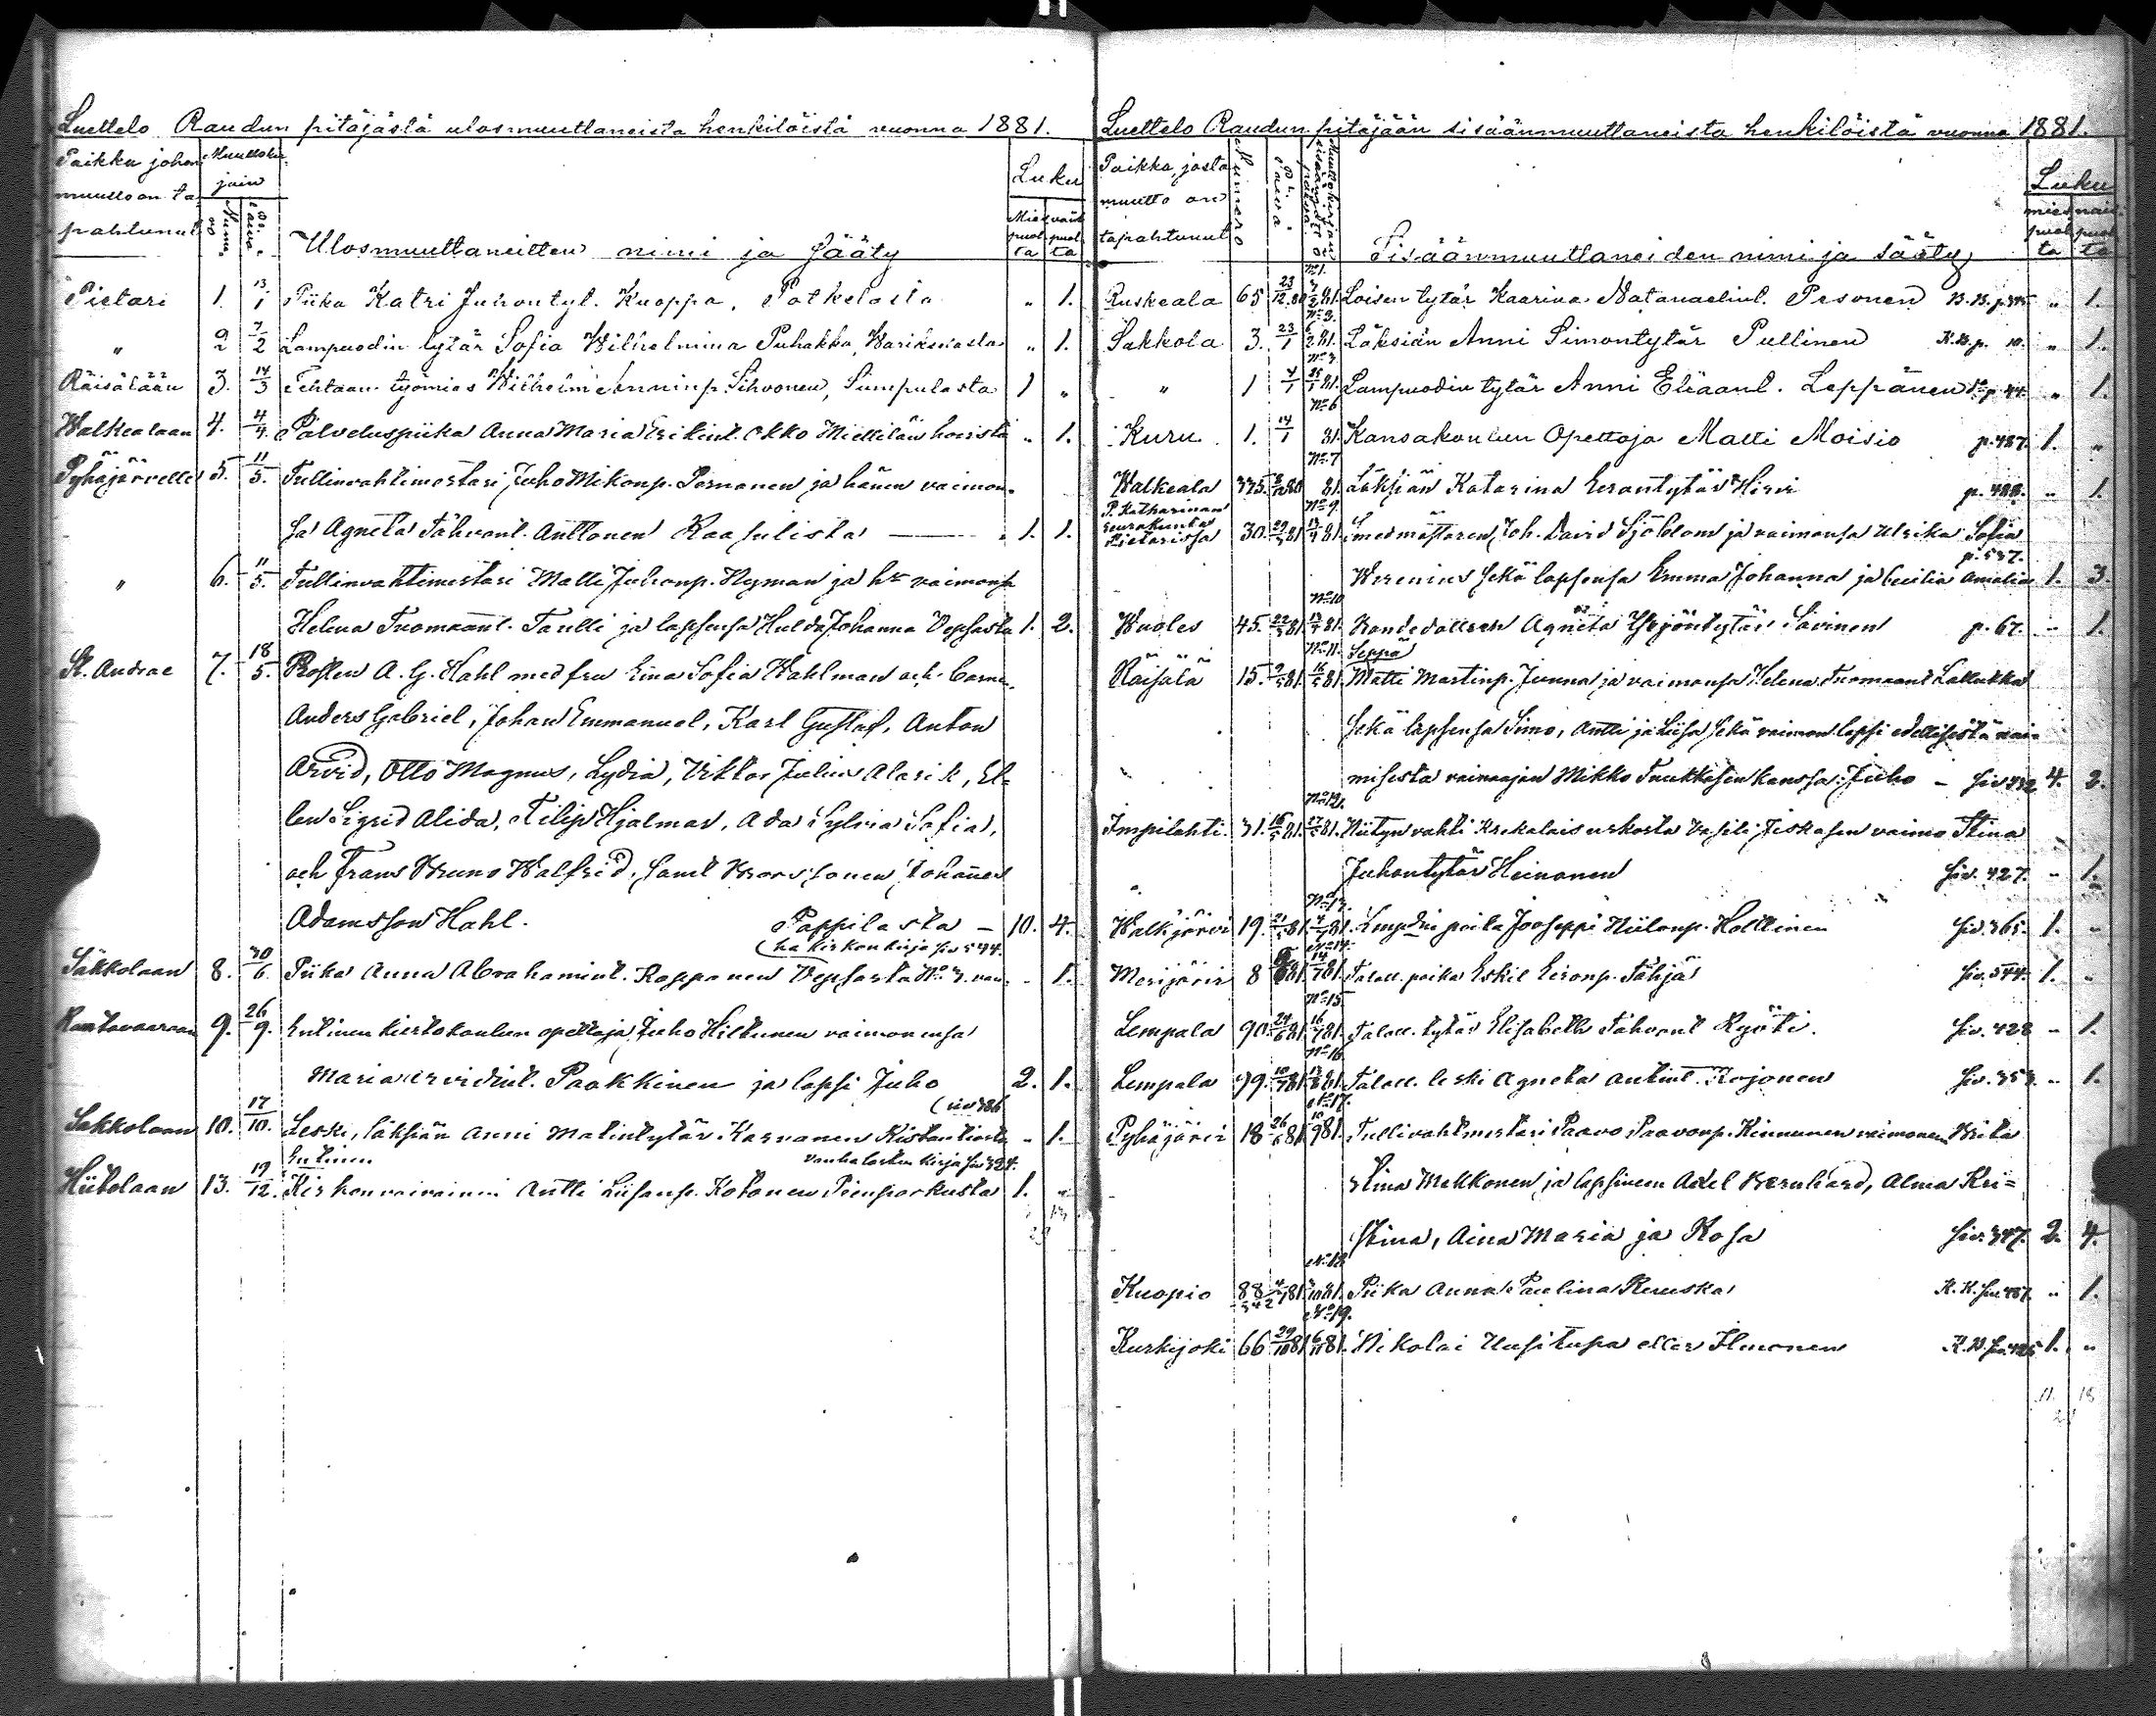 Luettelo Raudun pitäjästä ulosmuuttaneista henkilöistä vuonna 1881.
Paikka johon muutto on tapahtunut
Muuttokirjain
Numero
Päivä.
Ulosmuuttaneitten nimi ja Sääty
Luku
Miespuolta
vaimpuolta
Pietari 1. 13/1 Piika Katri Juhontyt. Kuoppa, Potkelasta " 1.
" 2 7/2 Lampuodin tytär Sofia Wilhelmina Puhakka, Wariksiasta " 1.
Räisälään 3. 14/3 Tehtaan työmies Wilhelm Sihvonen, Sumpulasta 1 "
Walkealaan 4. 4/4 Palveluspiika Anna Maria Erikint. Okko Miettilän hovista " 1.
Pyhäjärvelle 5. 11/5. Tullinvahtimestari Juho Mikonp. Pärnänen ja hänen vaimon-
sa Agneta Tahvont. Anttonen Raasulista 1. 1.
" 6. 11/5. Tullinvahtimestari Matti Juhonp. Nyman ja hn vaimonsa
Helena Tuomaant. Taulli ja lapsensa Hulda Johanna Vepsasta 1. 2.
St. Andrae 7. 18/5. Prosten A. G. Hahl med fru Eina Sofia Wahlman och barnen
Anders Gabriel, Johan Emmanuel, Karl Gustaf, Anton
Arvid, Otto Magnus, Lydia, Viktor Julius Alarik, El-
len Sigrid Alida, Filip Hjalmar, Ada Sylvia Sofia,
och Frans Bruno Walfrid, samt Johannes
Adamsson Hahl. Pappilasta 10. 4.
(ha kirkonkirja siv 544.
Sakkolaan 8. 30/6. Piika Anna Abrahamint. Ropponen Vepsasta No 3. - 1.
Kontovaaraan 9. 26/9. Entinen kiertokoulun opettaja Juho Hiltunen vaimonensa
Maria Arvidint. Paakkinen ja lapsi Juho 2. 1.
(siv 386
Sakkolaan 10. 17/10. Leski, läksiän Anni Matintytär Karvanen - 1.
Entinen vanha lasten kirja siv 324.
Hiitolaan 13. 19/12. Kirkonvaivainen Antti Liisanp. Kotonen 1. "
Luettelo Raudun pitäjään sisäänmuuttaneista henkilöistä vuonna 1881.
Paikka, josta muutto on tapahtunut
Numero
Päivä
Sisäänmuuttaneiden nimi ja sääty
Luku
miespuolta
naispuolta
No 1.
Ruskeala 65 23/12.80 Loisen tytär Kaarina Natanaelint. Pesonen B.B. p. 345 " 1.
No 3.
Sakkola 3. 23/1 6/2 81. Läksiän Anni Simontytär Pullinen K.B. p. 10. " 1.
" 1 4/1 Lampuodin tytär Anni Eliaant. Leppänen p. 44. " 1.
No 6
Kuru 1. 14/1 81. Kansakoulun Opettaja Matti Moisio p. 487. 1. "
No 7
Walkeala 375. 81. Läksiän Katarina Eerontytär Hirvi p. 488. " 1.
No 9.
P. Katharinan seurakunta Pietarissa 30. 29/3 81 13/4 81. Smedmästaren Joh. David Sjöblom ja vaimonsa Ulrika Sofia
p. 537.
Werenius sekä lapsensa Emma Johanna ja Cecilia Amalia 1. 3.
No 10
Wuoles 45. 22/3 81. Agneta Yrjöntytär Savinen p. 67. " 1.
No 11. Seppä
Räisälä 15. 9/5 81. 16/5 81. Matti Martinp. Junna ja vaimonsa Helena Tuomaant. Lallukka
sekä lapsensa Simo, Antti ja Liisa sekä vaimon lapsi edellisestä nai-
misesta vainaajan Mikko Tuukkasen kanssa: Juho - siv 432 4. 2.
No 12.
Impilahti. 31. 16/5 81. 27/5 81. Hiityn vahti Krekalais uskosta Vasili Jeskasen vaimo Stina
Juhontytär Heinonen siv. 427. " 1.
No 13.
Walkjärvi 19. 21/5 81. 4/7 81. Lmpdin poika Jooseppi Niilonp. Holttinen siv. 365. 1. "
No 14.
Merijärvi 8 14/7 81. Talall. poika Eskil Eeronp. Tähjä siv. 544. 1. "
No 15
Lempala 90. 24/6 81. 16/7 81. Talall. tytär Elisabeth Tahvont Ryöti. siv. 428 - 1.
No 16.
Lempala 99. 10/7 81. 13/8 81. Talall. leski Agneta Antint. Kojonen siv. 353. " 1.
No 17.
Pyhäjärvi 18 26/6 81. 10/9 81. Tullivahtmestari Paavo Paavonp. Kinnunen vaimonen Brita
Stina Mekkonen ja lapsineen Axel Bernhard, Alma Kri=
stina, Aina Maria ja Rosa siv. 347. 2. 4.
No 18.
Kuopio 88 Piika Anna Paulina Ruuska K.K. siv 487. " 1.
No 19.
Kurkijoki 66 29/10 81. 6/11 81. Nikolai Uusitupa eller Ilmonen 1. "
11. 18